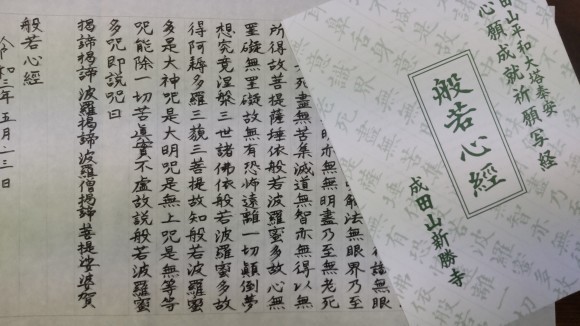 田山平和大塔奉安
心願成就祈願写経
般若心經
成田山新勝寺
法無眼界乃至
亦無無明盡乃至無老死
死盡無苦集滅道無智亦無得以無
所得故菩提薩埵依般若波羅蜜多故心無
罣礙無罣礙故無有恐怖遠離一切顛倒夢
想究竟涅槃三世諸佛依般若波羅蜜多故
得阿耨多羅三藐三菩提故知般若波羅蜜
多是大神呪是大明呪是無上呪是無等等
呪能除一切苦真實不虚故説般若波羅蜜
多呪即説呪曰
揭諦揭諦波羅揭諦波羅僧揭諦菩提娑婆賀
般若心經
令和三年五月十三日